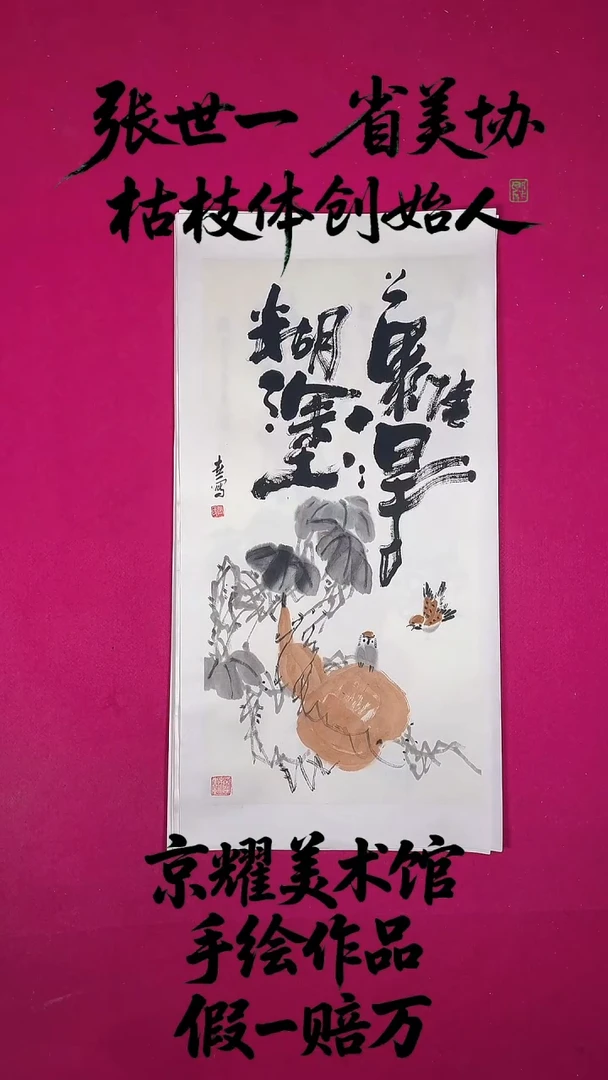 张世一 省美协
枯枝体创始人
難得
糊塗
京耀美术馆
手绘作品
假一赔万